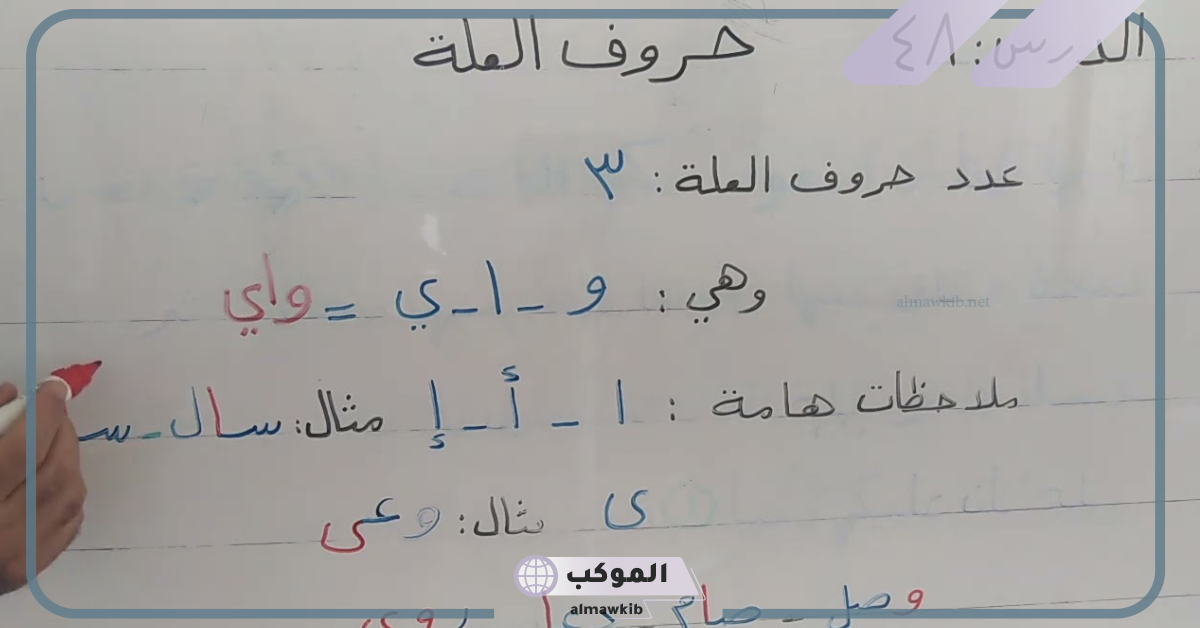 الدرس: ٤٨ حروف العلة
عدد حروف العلة: ٣
وهي: و - ا - ي = واي
almawkib.net
ملاحظات هامة: ا - أ - إ مثال: سال - س
ى مثال: وعى
وصل - صام
الموكب
almawkib